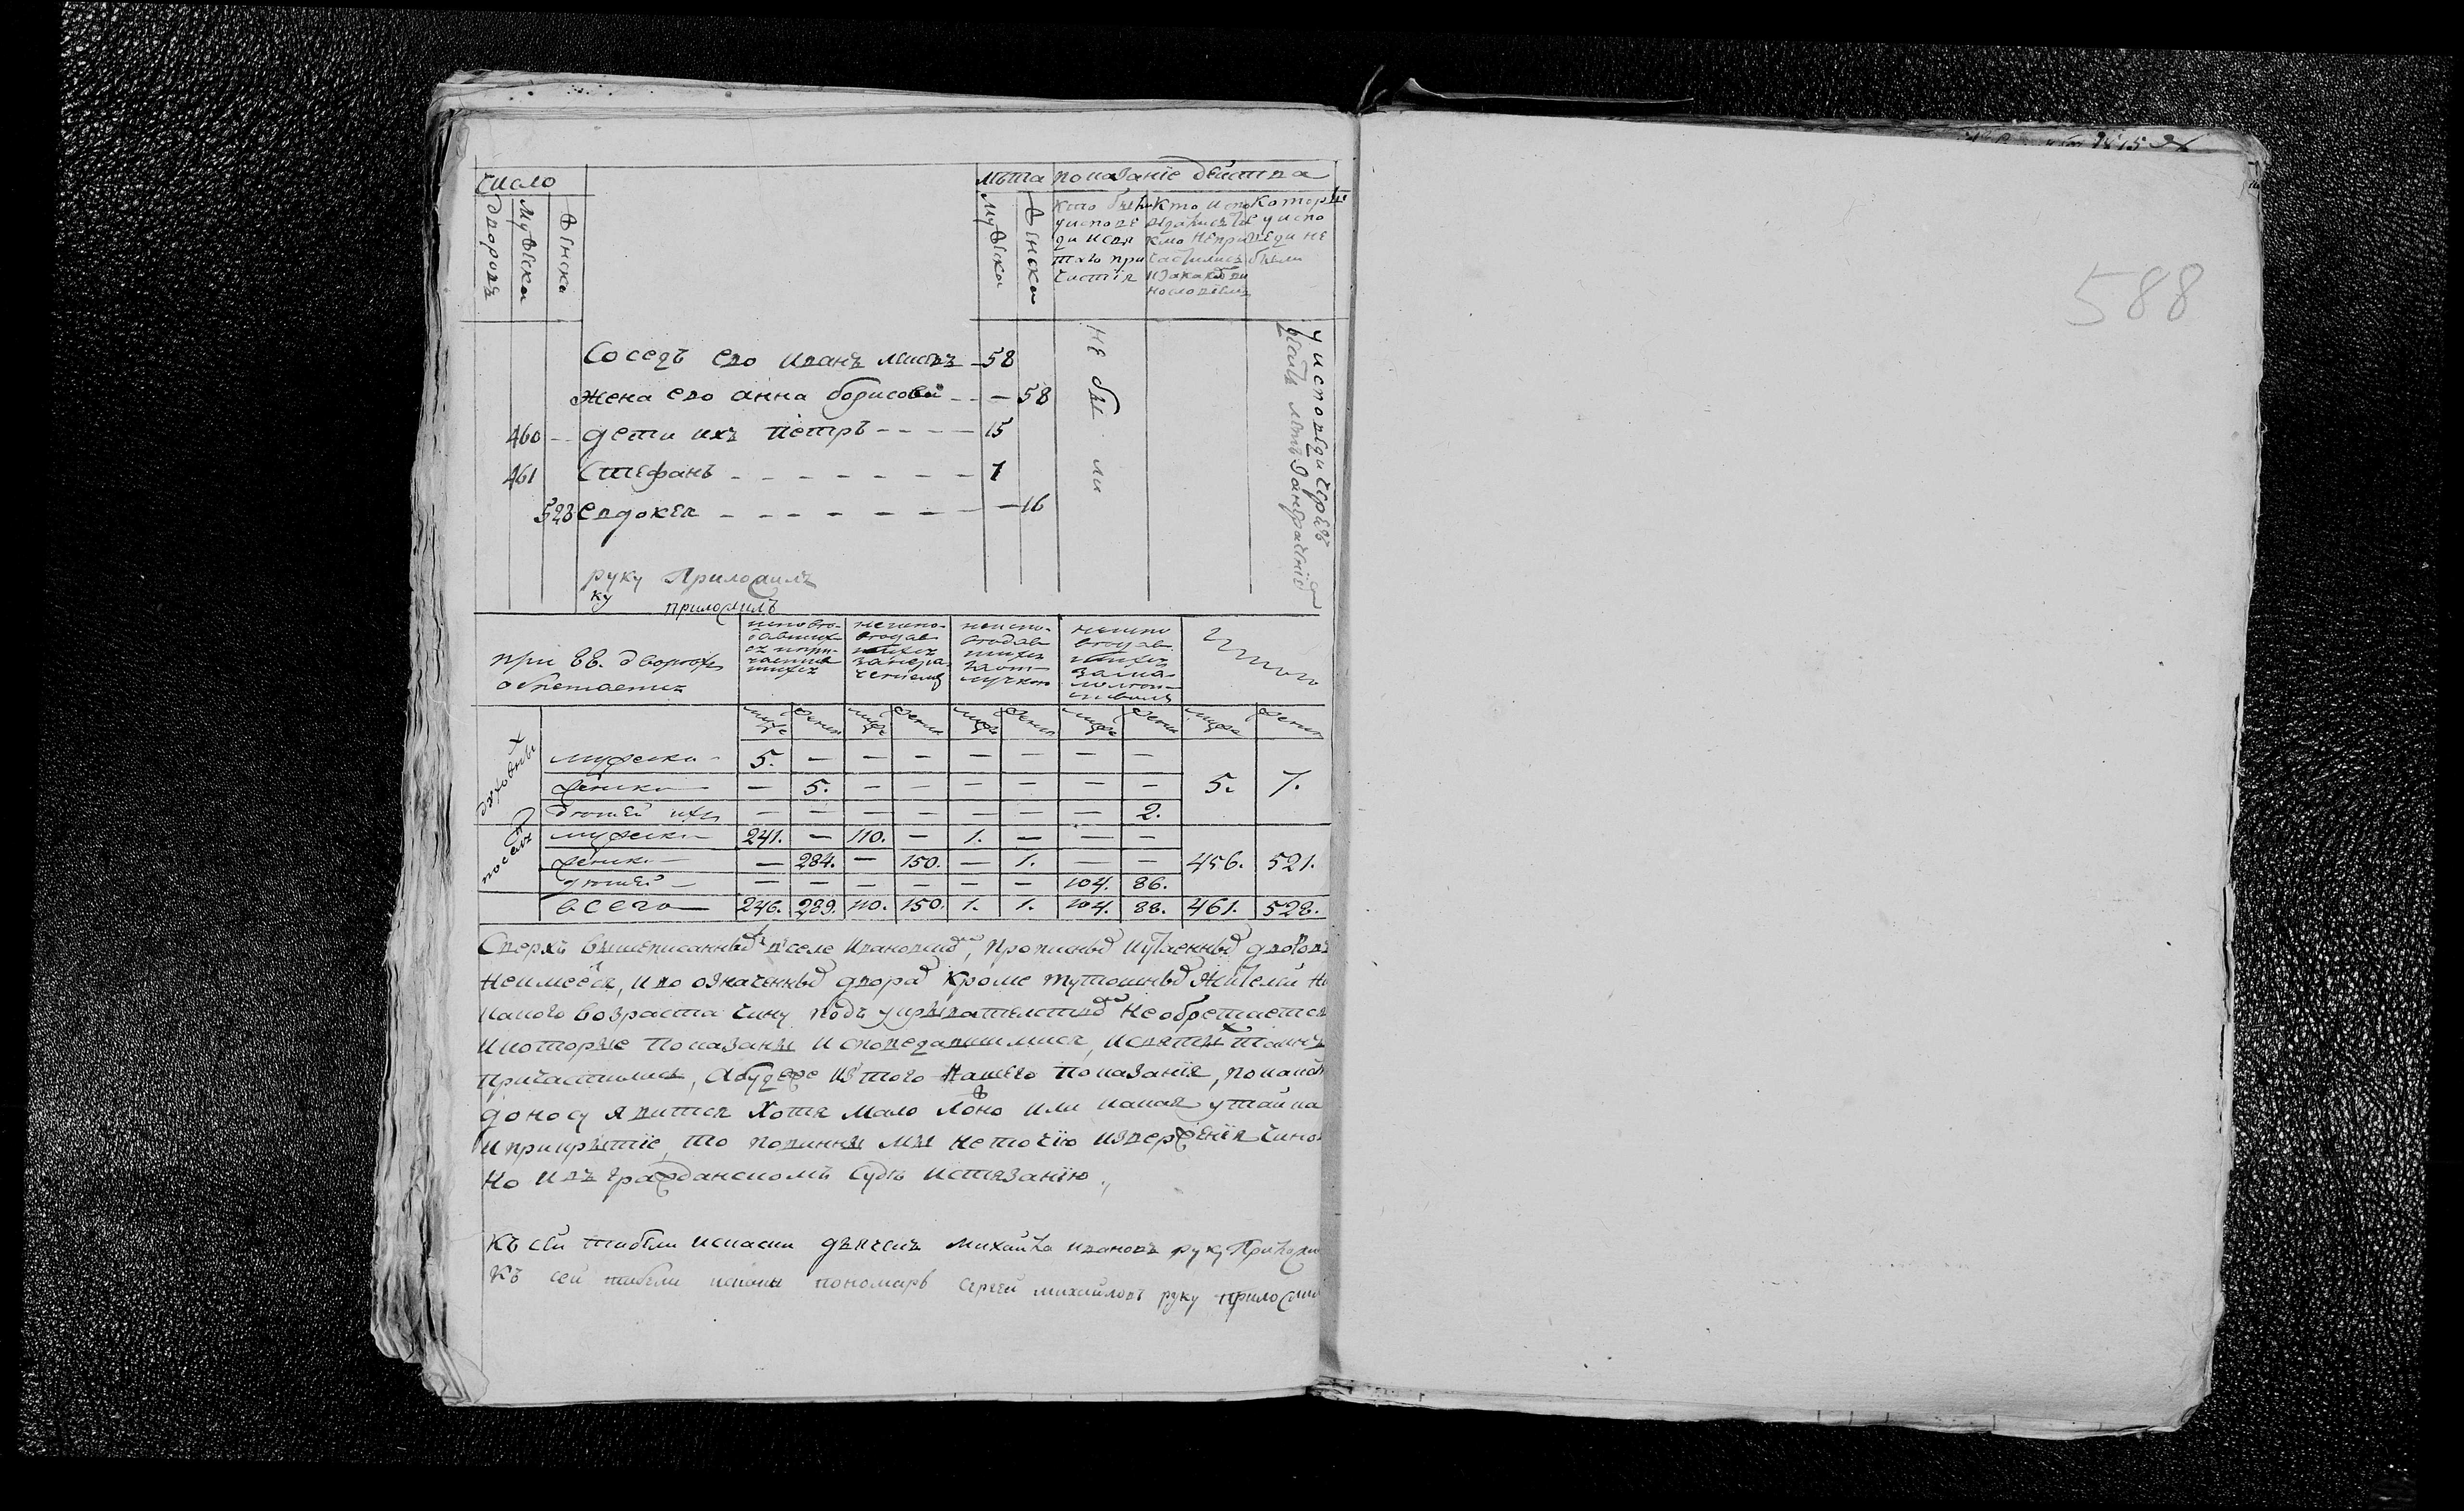 число
лѣта показанїе действа
дворовъ
мужеска
женска
мужеска
женска
кто были
у исповѣ
ди и свя
тыхъ при
частїя
кто испо
ведались
кмо не при
частились
и за каковы
мъ
Которые
у испо
веди не
были
Соседъ ево иванъ 58
жена ево анна борисова - - — 58
460 -- дети ихъ петръ - - - - 15
461 Стефанъ - - - - - - - 7
528 Евдокея - - - - - - - — 16
не бы ли
у исповеди
руку Приложилъ
ку приложилъ
при 88. дворахъ
обретается
исповедавшихся и причастившихся
неисповедавшихся
за нера
ченїемъ
неисповедавшихся
за от
лучкою
неисповедавшихся
за ма
летством
итого
муже женск муже женск муже женск муже женск муже женск
духовныхъ
мужеска - 5. — — — — — — —
женска — — 5. — — — — — — 5. 7.
детей ихъ — — — — — — — 2.
поселя
мужеска — 241. — 110. — 1. — — —
женска — — 284. — 150. — 1. — — 456. 521.
детей — — — — — — — 104. 86.
всего — 246. 289. 110. 150. 1. 1. 104. 88. 461. 528.
Сверхъ вышеписанныхъ в селе ивановскомъ, Прописныхъ и утаенныхъ дворовъ
Неимеется, и во означенныхъ дворахъ кроме тутошныхъ жителей ни
какого возраста чину подъ укрывателствомъ Необретается
и которые показаны исповедавшимися, и святыхъ таинъ
Причастились, А буде же из того нашего показанїя, по какому
доносу явится хотя мало ложно или какая утайка
и прикрытїе, то повинны мы не точїю извержения чинов
но и въ гражданскомъ судѣ истязанїю.
Къ сей табели исакии дьячекъ михайла ивановъ руку Приложи
Къ сей табели пономарь сергей михайловъ руку приложил
588